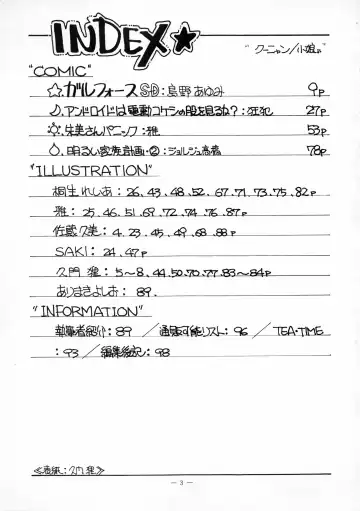 INDEX★
"クーニャン/小娘"
"COMIC"
☆ガルフォースSD:島野あゆみ 9p
アンドロイドは電動コケシの股を見るね?:狂犯 27p
朱美さんパニック:雅 53p
明るい家族計画・②:ジョルジュ高橋 78p
"ILLUSTRATION"
桐生れしあ:26、43、48、52、67、71、73、75、82p
雅:25、46、51、69、72、74、76、87p
佐藤久美:4、23、45、49、68、88p
SAKI:24、47p
久門 狼:5~8、44、50、70、77、83~84p
ありまきよしお:89.
"INFORMATION"
執筆者紹介:89/通販可能リスト:96/TEA・TIME
:93/編集後記:98
≪表紙:久門 狼≫
— 3 —